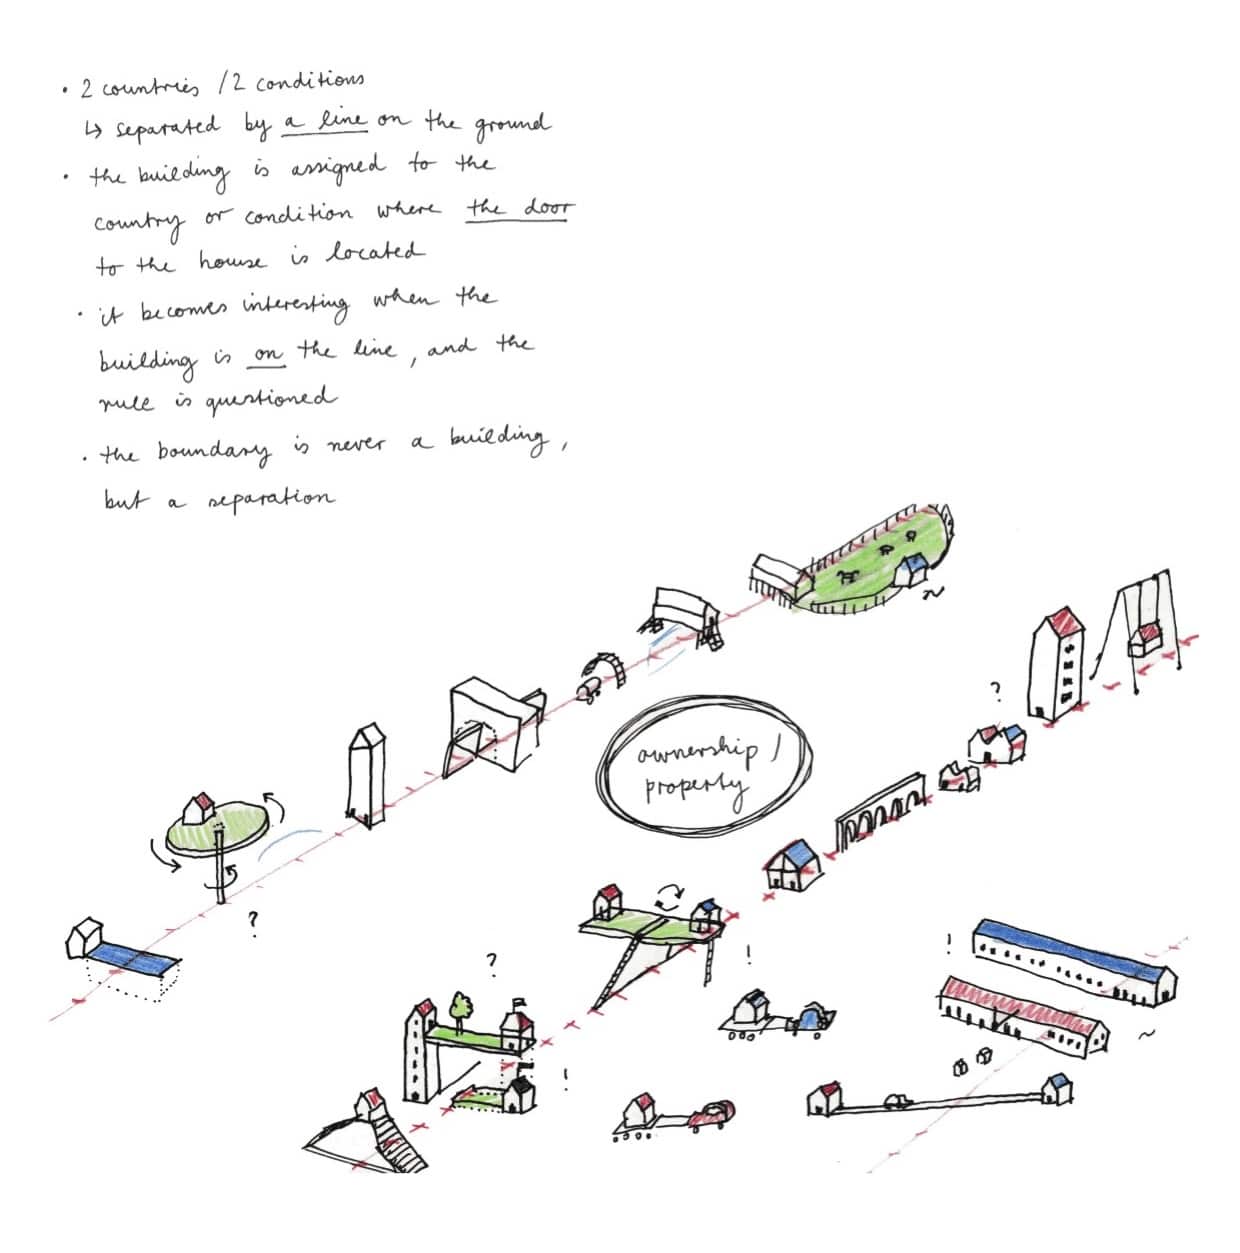 • 2 countries / 2 conditions
↳ separated by a line on the ground
• the building is assigned to the
country or condition where the door
to the house is located
• it becomes interesting when the
building is on the line, and the
rule is questioned
• the boundary is never a building,
but a separation
~
?
ownership /
property
?
!
?
!
!
~